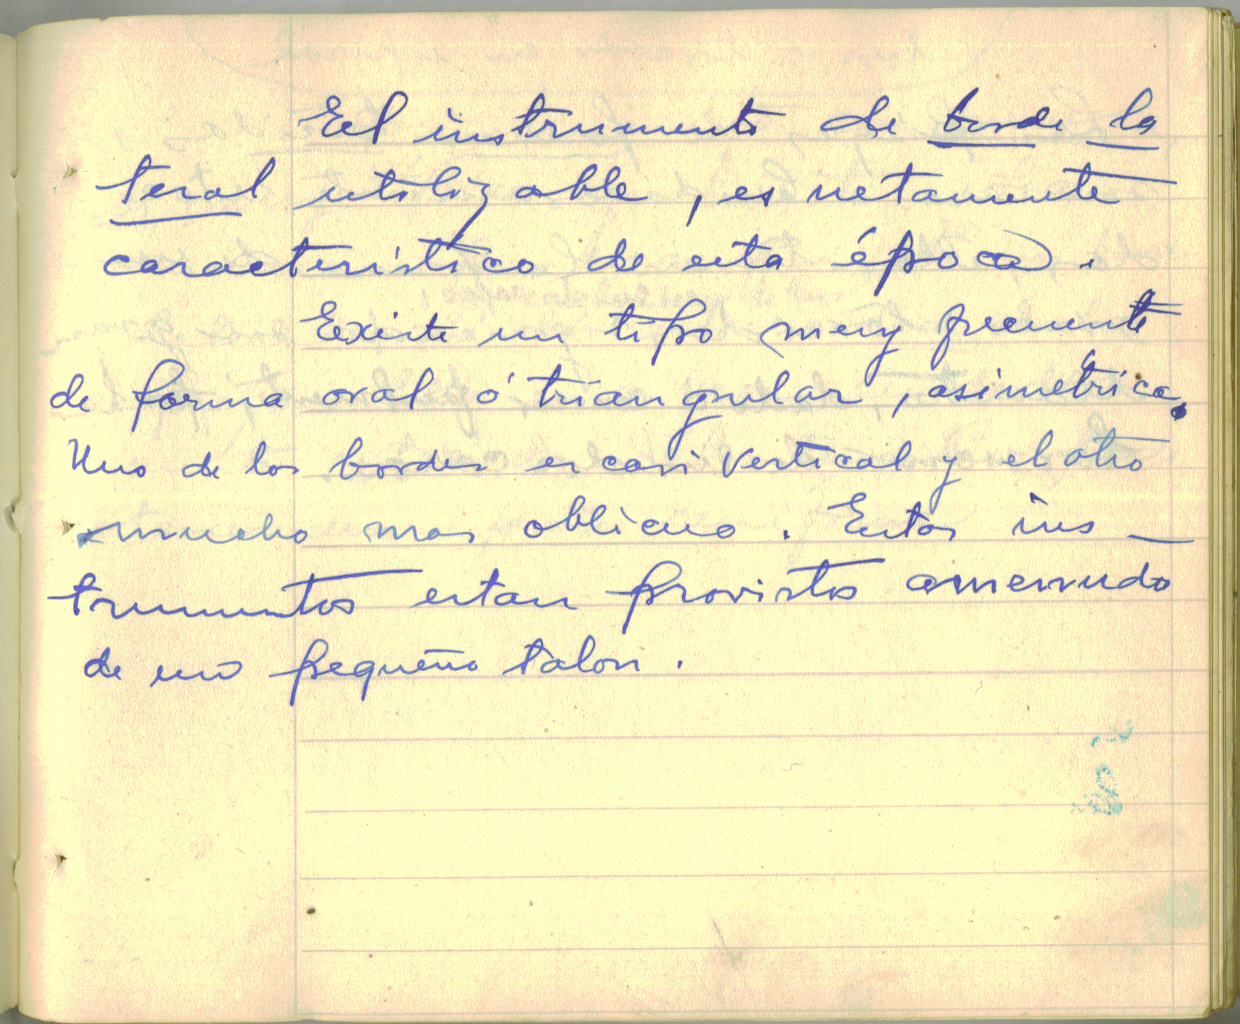 El instrumento de borde la
teral utilizable, es netamente
caracteristico de esta época.
Existe un tipo muy frecuente
de forma oval ó triangular, asimétrica.
Uno de los bordes es casi vertical y el otro
mucho mas oblicuo. Estos ins_
trumentos estan provistos amenudo
de un pequeño talon.